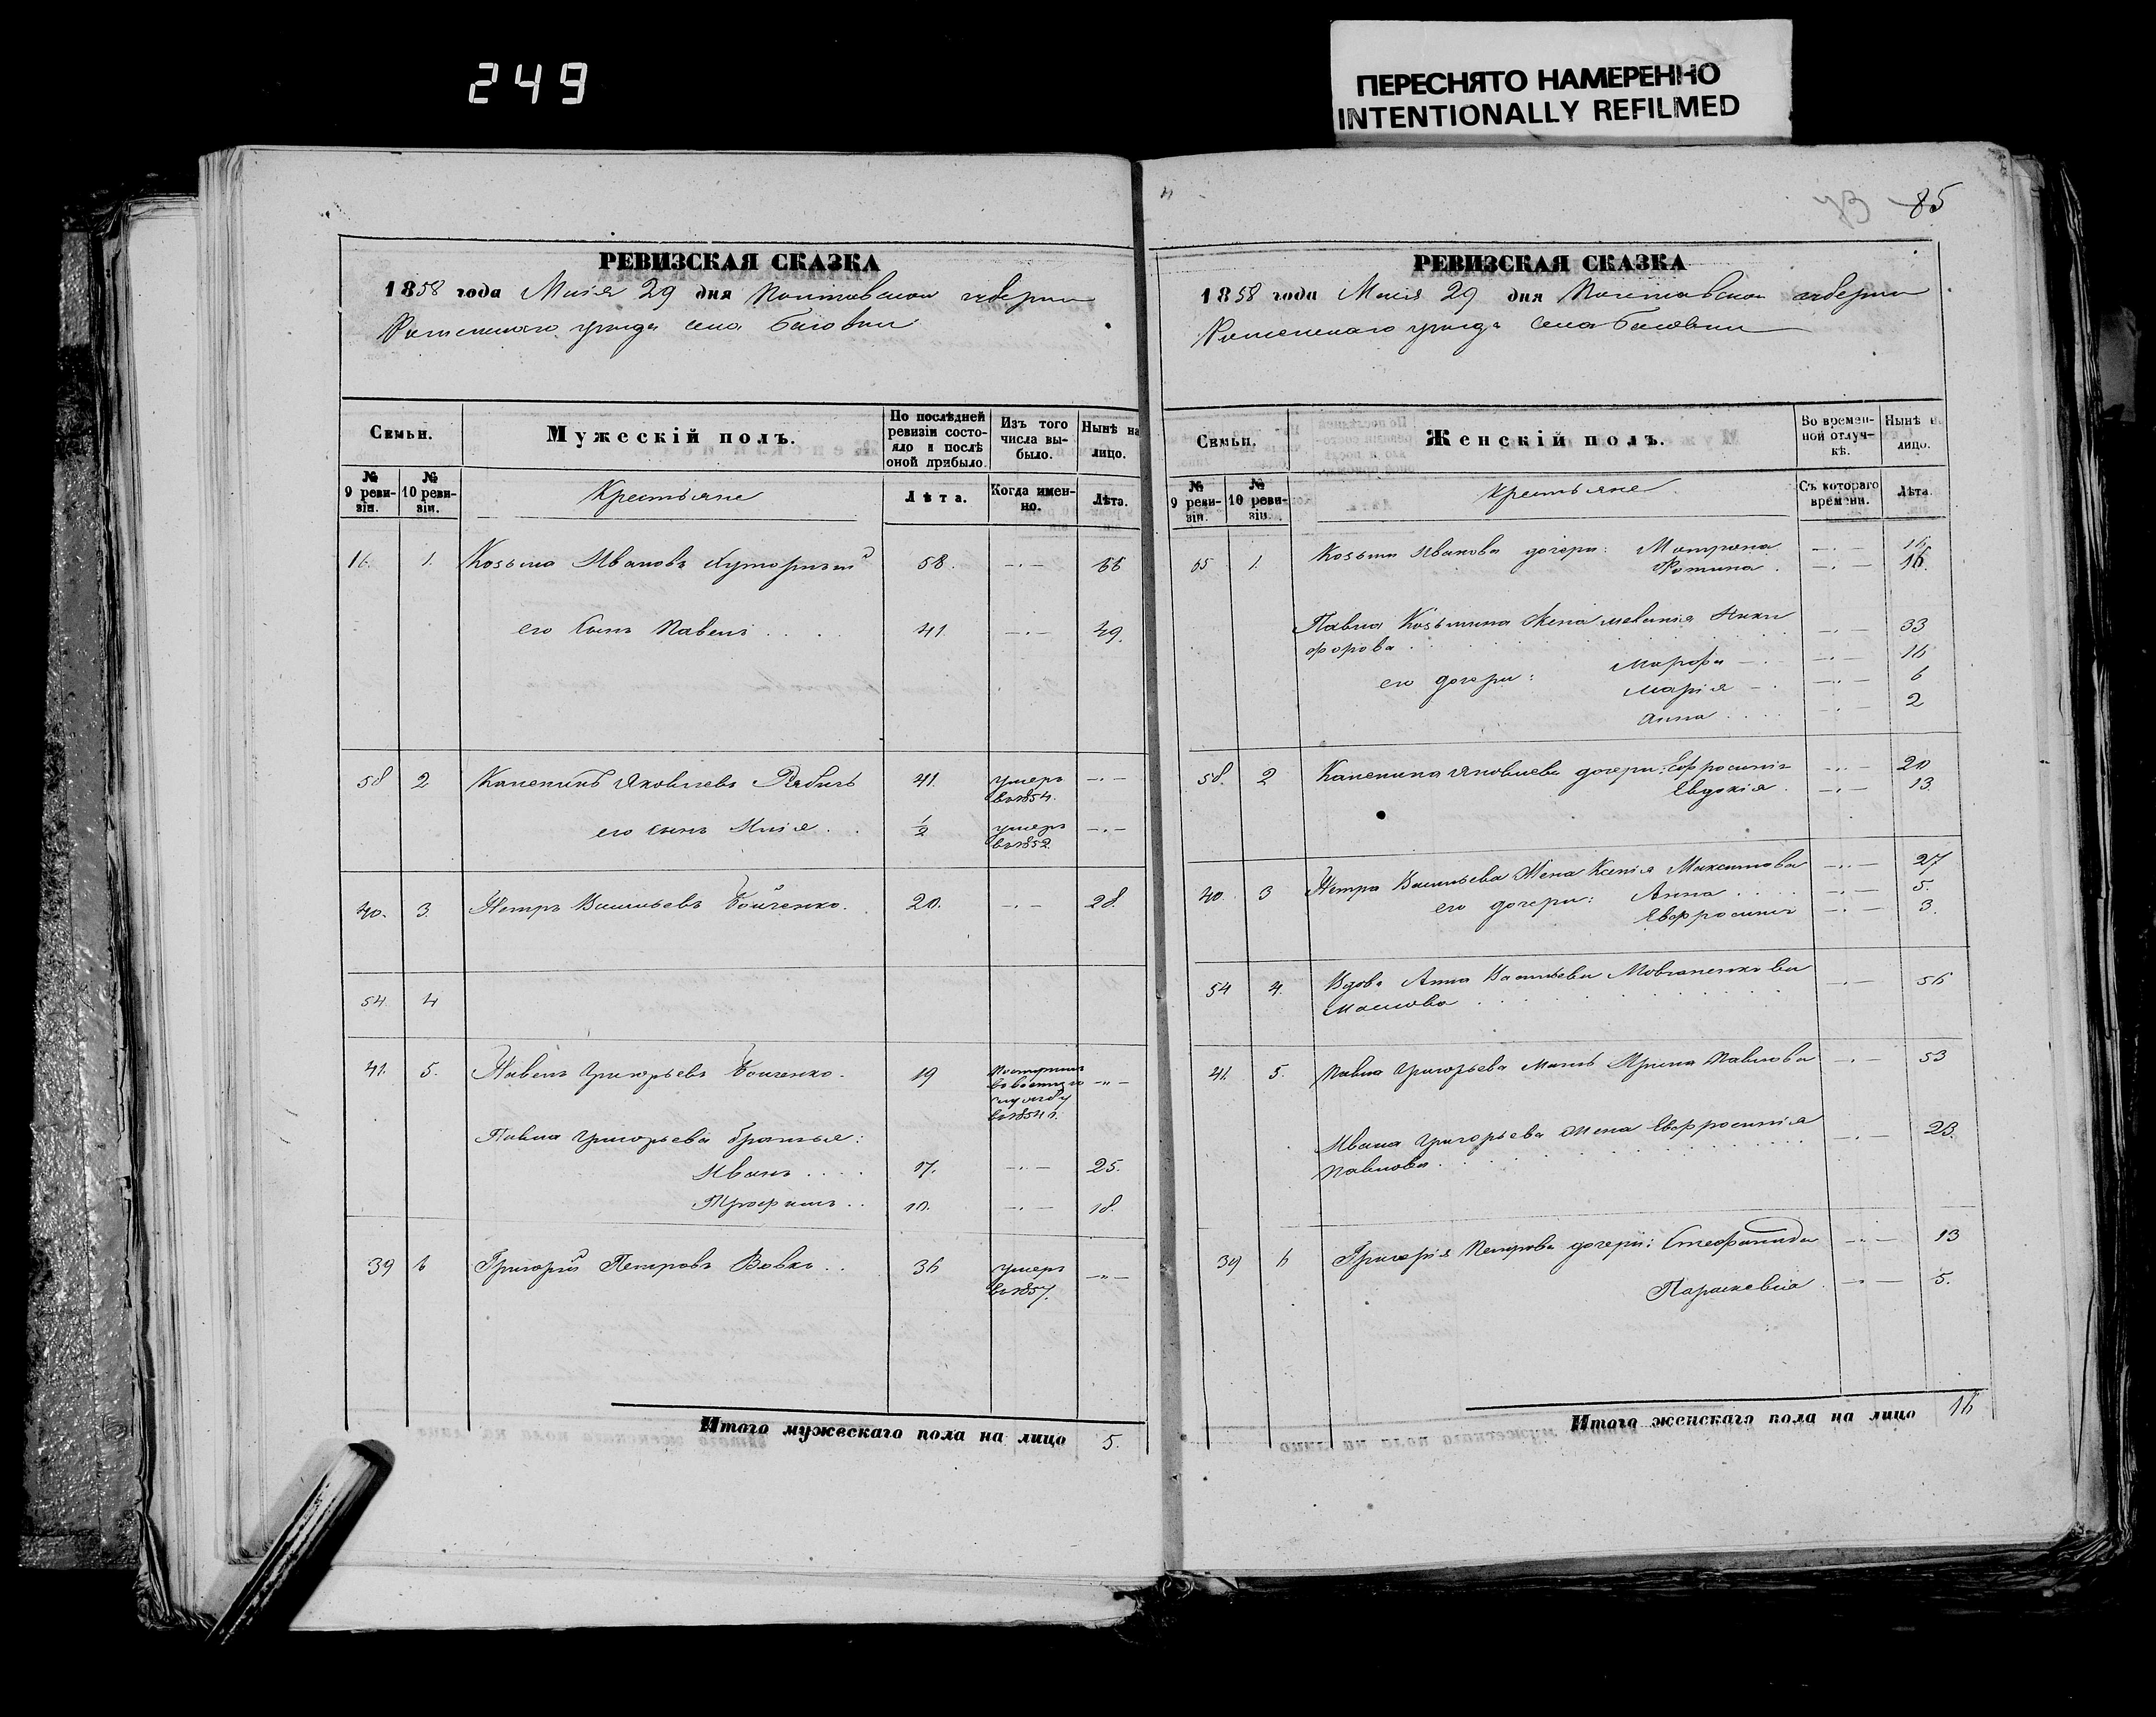 249
ПЕРЕСНЯТО НАМЕРЕННО
INTENTIONALLY REFILMED
85
РЕВИЗСКАЯ СКАЗКА
1858 года Маія 29 дня Полтавской губерніи
Роменскаго уѣзда села Басовки
Семьи.
Мужескій полъ.
По послѣдней ревизіи состояло и послѣ оной прибыло.
Изъ того числа выбыло.
Нынѣ на лицо.
№ 9 ревизіи.
№ 10 ревизіи.
Крестьяне
Лѣта.
Когда именно.
Лѣта.
16. 1. Козьма Ивановъ 58. 66
его сынъ Павелъ 41 49.
58 2 Яковлевъ 41. умеръ въ 1854.
его сынъ Илія 1/2 умеръ въ 1852.
40. 3. Петръ Васильевъ Бойченко. 20. 28.
54. 4
41. 5. Павелъ Григорьевъ Бойченко. 19 поступилъ
въ военную
службу
въ 1854 г.
Павла Григорьева братья:
Иванъ 17. 25.
Трофимъ 10. 18.
39 6 Григорій Петровъ Вовкъ 36 умеръ
въ 1857.
Итого мужескаго пола на лицо 5.
РЕВИЗСКАЯ СКАЗКА
1858 года Маія 29 дня Полтавской губерніи
Роменскаго уѣзда села Басовки
Семьи.
Женскій полъ.
Во временной отлучкѣ.
Нынѣ на лицо.
№ 9 ревизіи.
№ 10 ревизіи.
Крестьяне
Съ котораго времени.
Лѣта.
1. Козьмы Иванова дочери: Матрона 16
16.
Павла Козьмина жена Меланія Ники
форова 33
его дочери: Марфа 16
Марія 6
Анна 2
58. 2 Яковлева дочери: Ефросинія 20
Евдокія 13.
40. 3 Петра Васильева жена Ксенія Максимова 27
его дочери: Анна 5.
Евфросинія 3.
54 4. Вдова Анна Васильева 56
41. 5. Павла Григорьева мать Ирина Павлова 53
Ивана Григорьева жена Евфросинія 23.
Павлова
39 6 Григорія Петрова дочери: Стефанида 13
Параскевія 5.
Итого женскаго пола на лицо 16